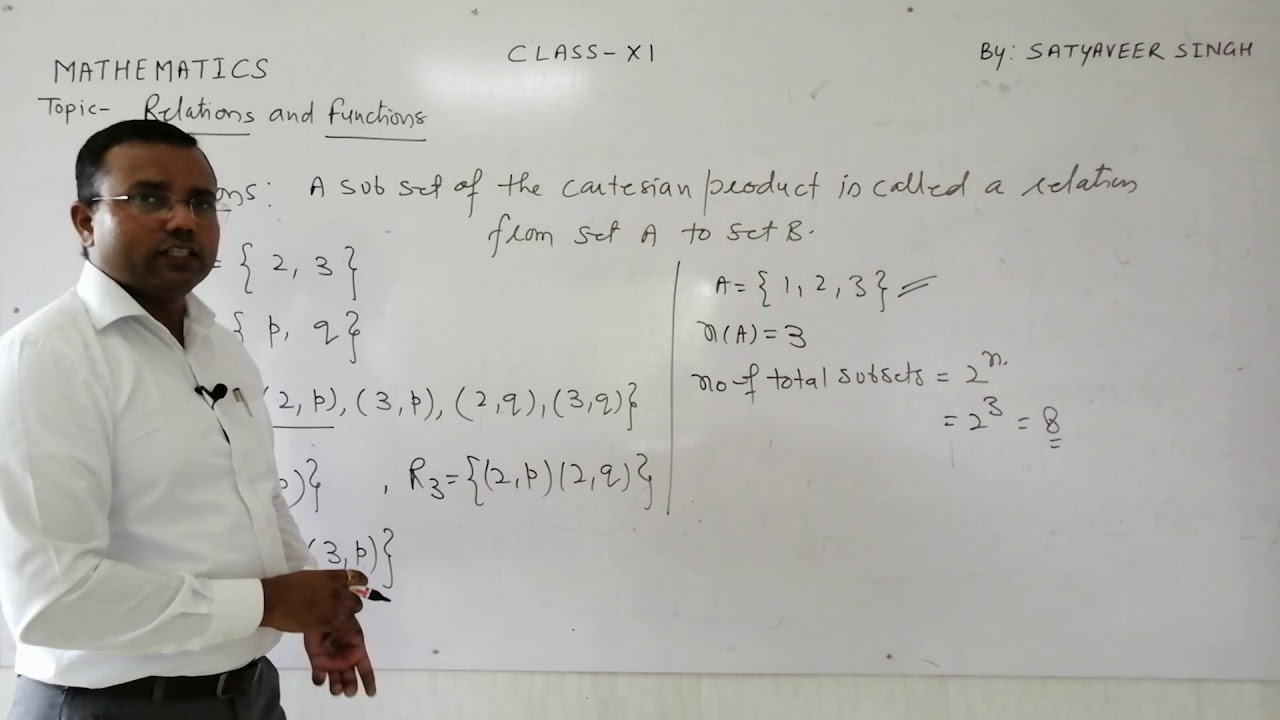 MATHEMATICS
CLASS-XI
By: SATYAVEER SINGH
Topic- Relations and functions
ons: A sub set of the cartesian product is called a relation
from set A to set B.
= { 2, 3 }
{ p, q }
(2, p), (3, p), (2, q), (3, q)}
p)} , R₃ = {(2, p)(2, q)}
(3, p)}
A = { 1, 2, 3 }
n(A) = 3
no of total subsets = 2ⁿ
= 2³ = 8